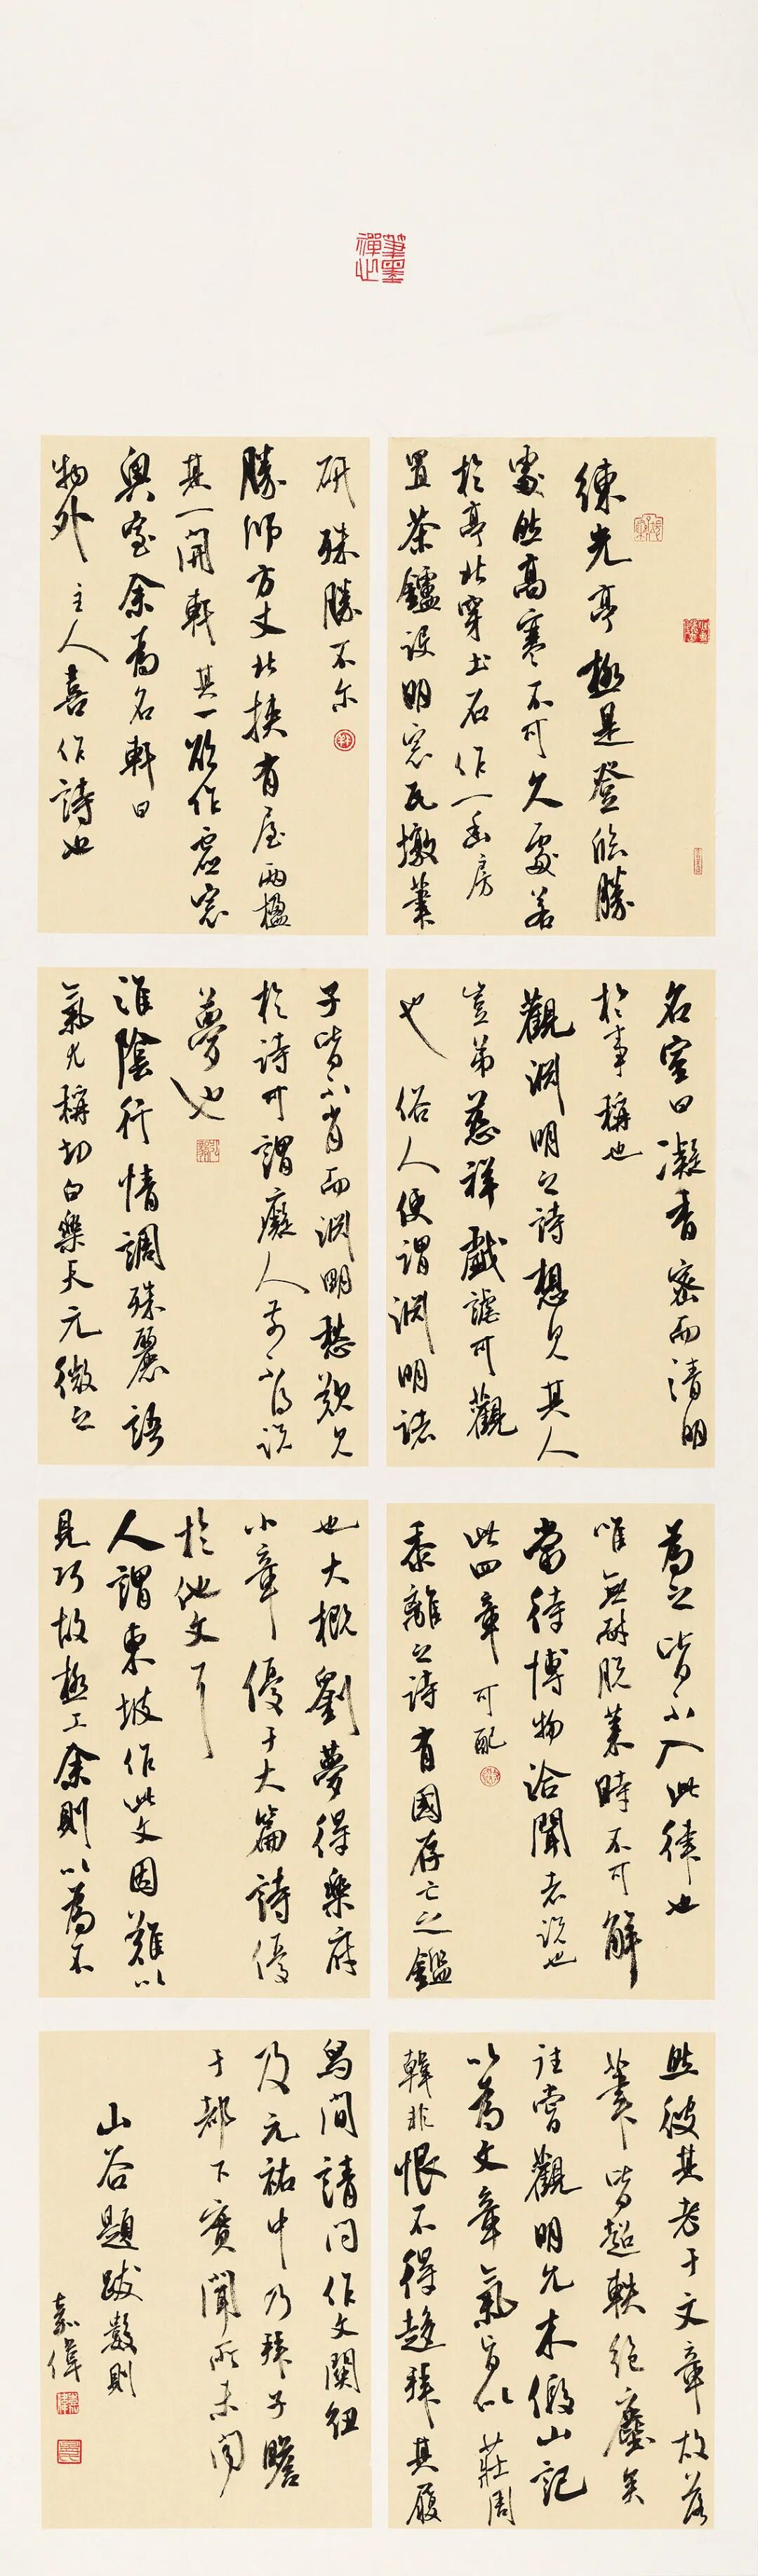 筆墨禪心
練光亭極是登臨勝
處然高寒不可久處若
於亭北穿土石作一幽房
置茶鑪設明窓瓦墩葉
研殊勝不尔
勝師方丈北挾有屋兩楹
其一開軒其一欲作虛窓
奧室余為名軒曰
物外主人喜作詩也
名室曰凝香密而清明
於事稱也
觀淵明之詩想見其人
豈弟慈祥戲謔可觀
也俗人便謂淵明諸
子皆不肖而淵明愁歎見
於詩可謂癡人前不得說
夢也
淮陰行情調殊麗語
氣尤穩切白樂天元微之
為之皆不入此律也
唯無耐脫萊時不可解
當待博物洽聞者說也
此四章可配
黍離之詩有國存亡之鑑
也大概劉夢得樂府
小章優于大篇詩優
於他文耳
人謂東坡作此文因難以
見巧故極工余則以為不
然彼其老于文章故落
筆皆超軼絕塵矣
往嘗觀明允木假山記
以為文章氣旨似莊周
韓非恨不得趍拜其履
舄間請問作文關紐
及元祐中乃拜子瞻
于都下實聞所未聞
山谷題跋數則
嘉偉